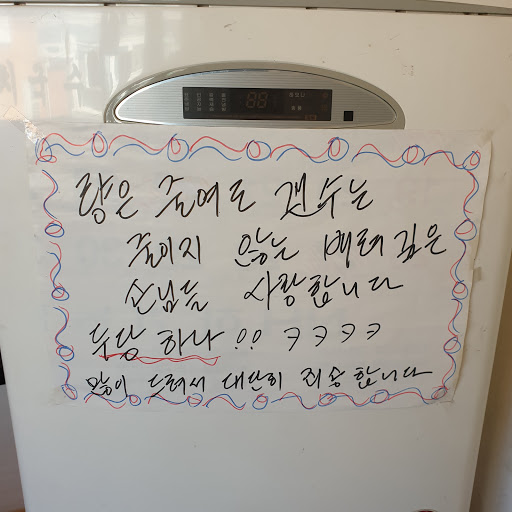 량은 줄여도 갯수는
줄이지 않는 배려깊은
손님들 사랑합니다
두당 하나!! ㅋㅋㅋㅋ
많이 드려서 대단히 죄송합니다